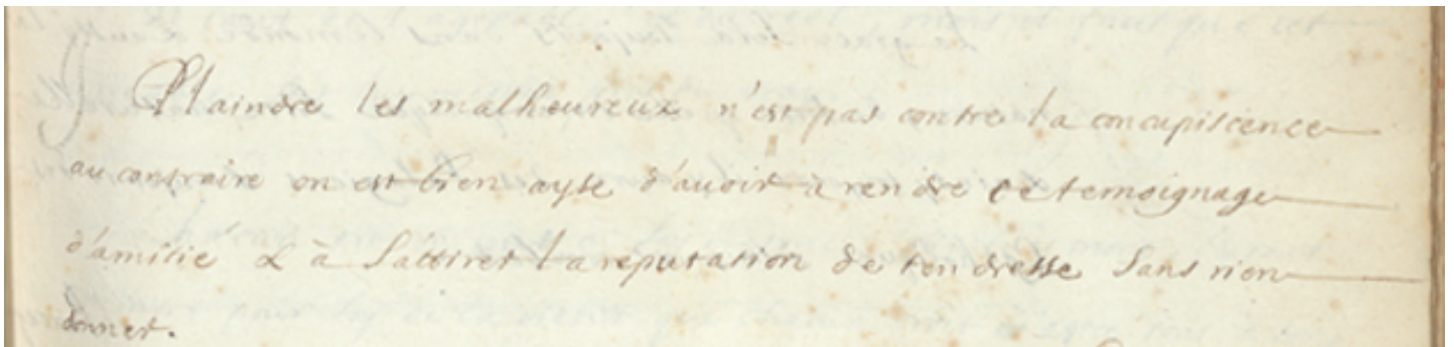 Plaindre les malheureux n'est pas contre la concupiscence
au contraire on est bien ayse d'auoir à rendre ce temoignage
d'amitié & à s'attirer la reputation de tendresse sans rien
donner.